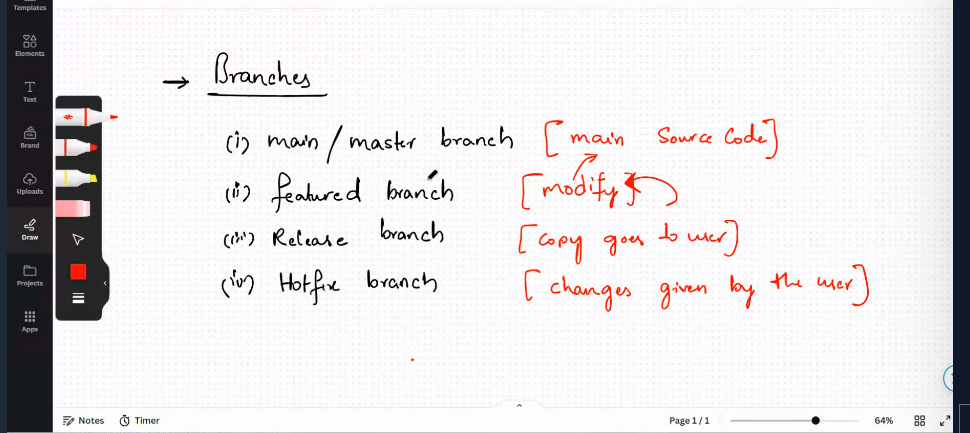 Templates
Elements
Text
Brand
Uploads
Draw
Projects
Apps
→ Branches
(i) main / master branch [main Source Code]
(ii) featured branch [modify]
(iii) Release branch [copy goes to user]
(iv) Hotfix branch [changes given by the user]
Notes Timer Page 1 / 1 64%